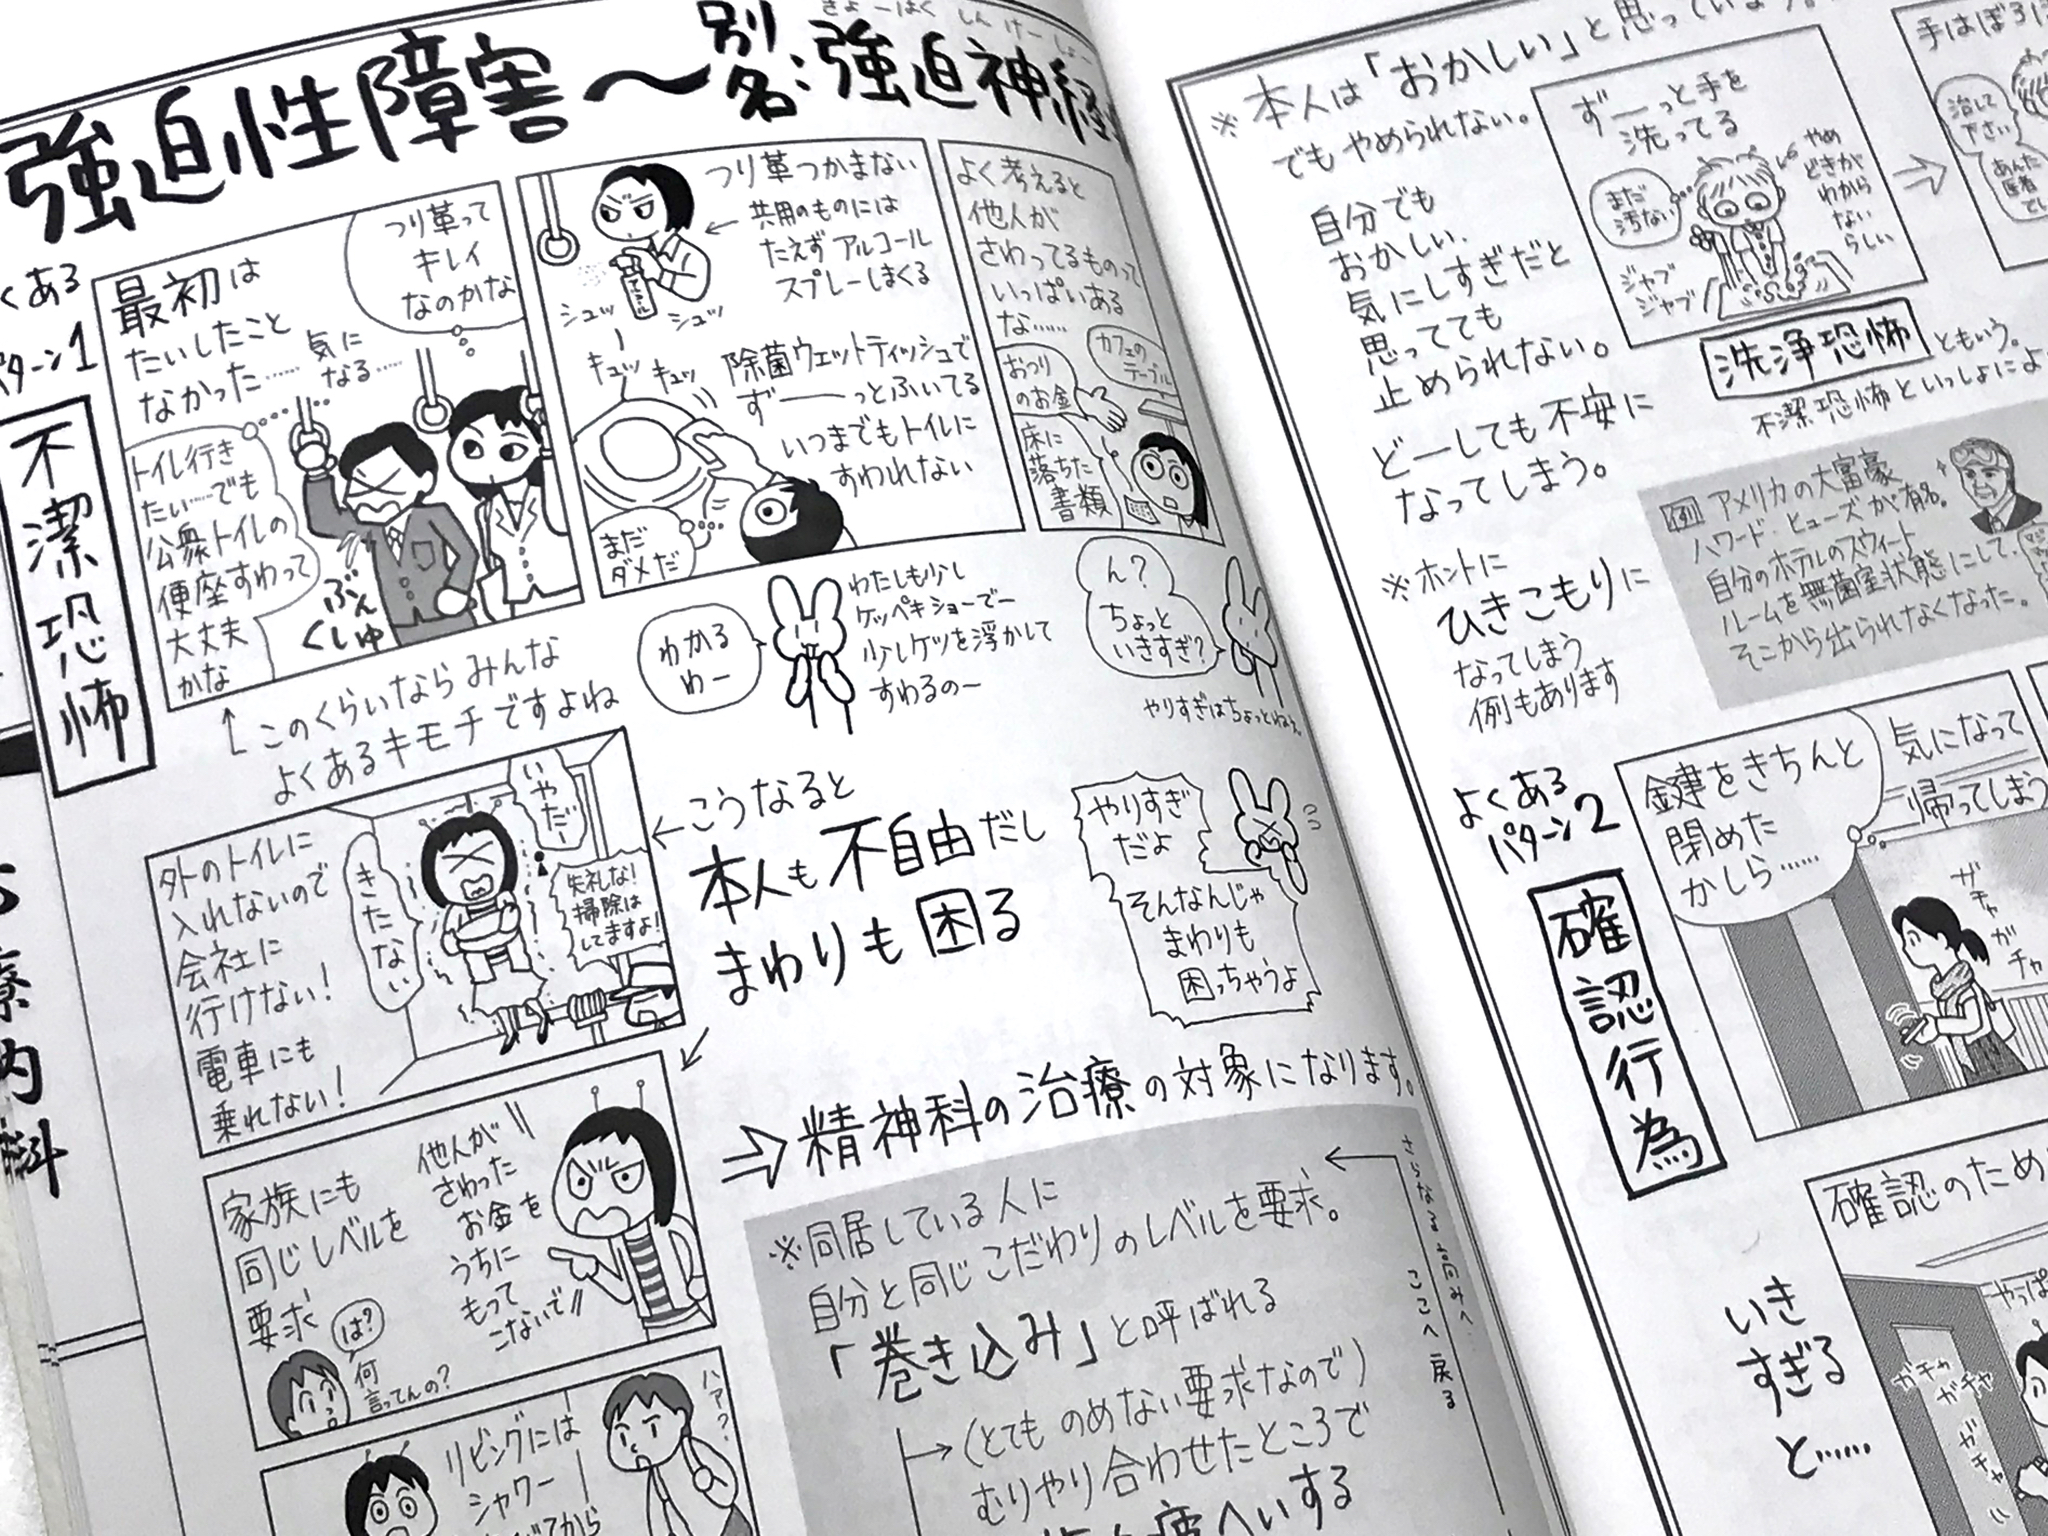 強迫性障害〜別名:強迫神経
きょーはくしんけーしょー
くある
パターン1
不潔恐怖
最初は
たいしたこと
なかった……
気に
なる……
つり革って
キレイ
なのかな
トイレ行き
たい……でも
公衆トイレの
便座すわって
大丈夫
かな
ぶえん
くしゅ
↑このくらいならみんな
よくあるキモチですよね
つり革つかまない
←共用のものには
たえずアルコール
スプレーしまくる
シュッ
シュッ
キュッ
キュッ
除菌ウェットティッシュで
ず——っとふいてる
いつまでもトイレに
すわれない
まだ
ダメだ
よく考えると
他人が
さわってるものって
いっぱいある
な……
おつり
のお金
カフェの
テーブル
床に
落ちた
書類
わかる
わー
わたしも少し
ケッペキショーでー
少しケツを浮かして
すわるのー
ん?
ちょっと
いきすぎ?
やりすぎはちょっとねぇ
外のトイレに
入れないので
会社に
行けない!
電車にも
乗れない!
きたない
いやだー
失礼な!
掃除は
してますよ!
←こうなると
本人も不自由だし
まわりも困る
やりすぎ
だよ
そんなんじゃ
まわりも
困っちゃうよ
⇒精神科の治療の対象になります。
家族にも
同じレベルを
要求
他人が
さわった
お金を
うちに
もって
こないで
は?
何
言ってんの?
※同居している人に
自分と同じこだわりのレベルを要求。
「巻き込み」と呼ばれる
(とてものめない要求なので)
むりやり合わせたところで
疲へいする
さらなる高みへ
ここへ戻る
リビングには
シャワー
ハア?
療内科
※本人は「おかしい」と思っている
でもやめられない。
自分でも
おかしい、
気にしすぎだと
思ってても
止められない。
どーしても不安に
なってしまう。
ず——っと手を
洗ってる
まだ
汚ない
やめ
どきが
わから
ない
らしい
ジャブ
ジャブ
→
手はぼろぼ
治して
下さい
あんた
医者
でし
洗浄恐怖ともいう。
不潔恐怖といっしょによ
例 アメリカの大富豪
ハワード・ヒューズが有名。
自分のホテルのスウィート
ルームを無菌室状態にして、
そこから出られなくなった。
※ホントに
ひきこもりに
なってしまう
例もあります
よくある
パターン2
確認行為
鍵をきちんと
閉めた
かしら……
気になって
帰ってしまう
ガチャ
ガチャ
確認のため
いき
すぎる
と……
やっぱ
ガチャ
ガチャ
ガチャ